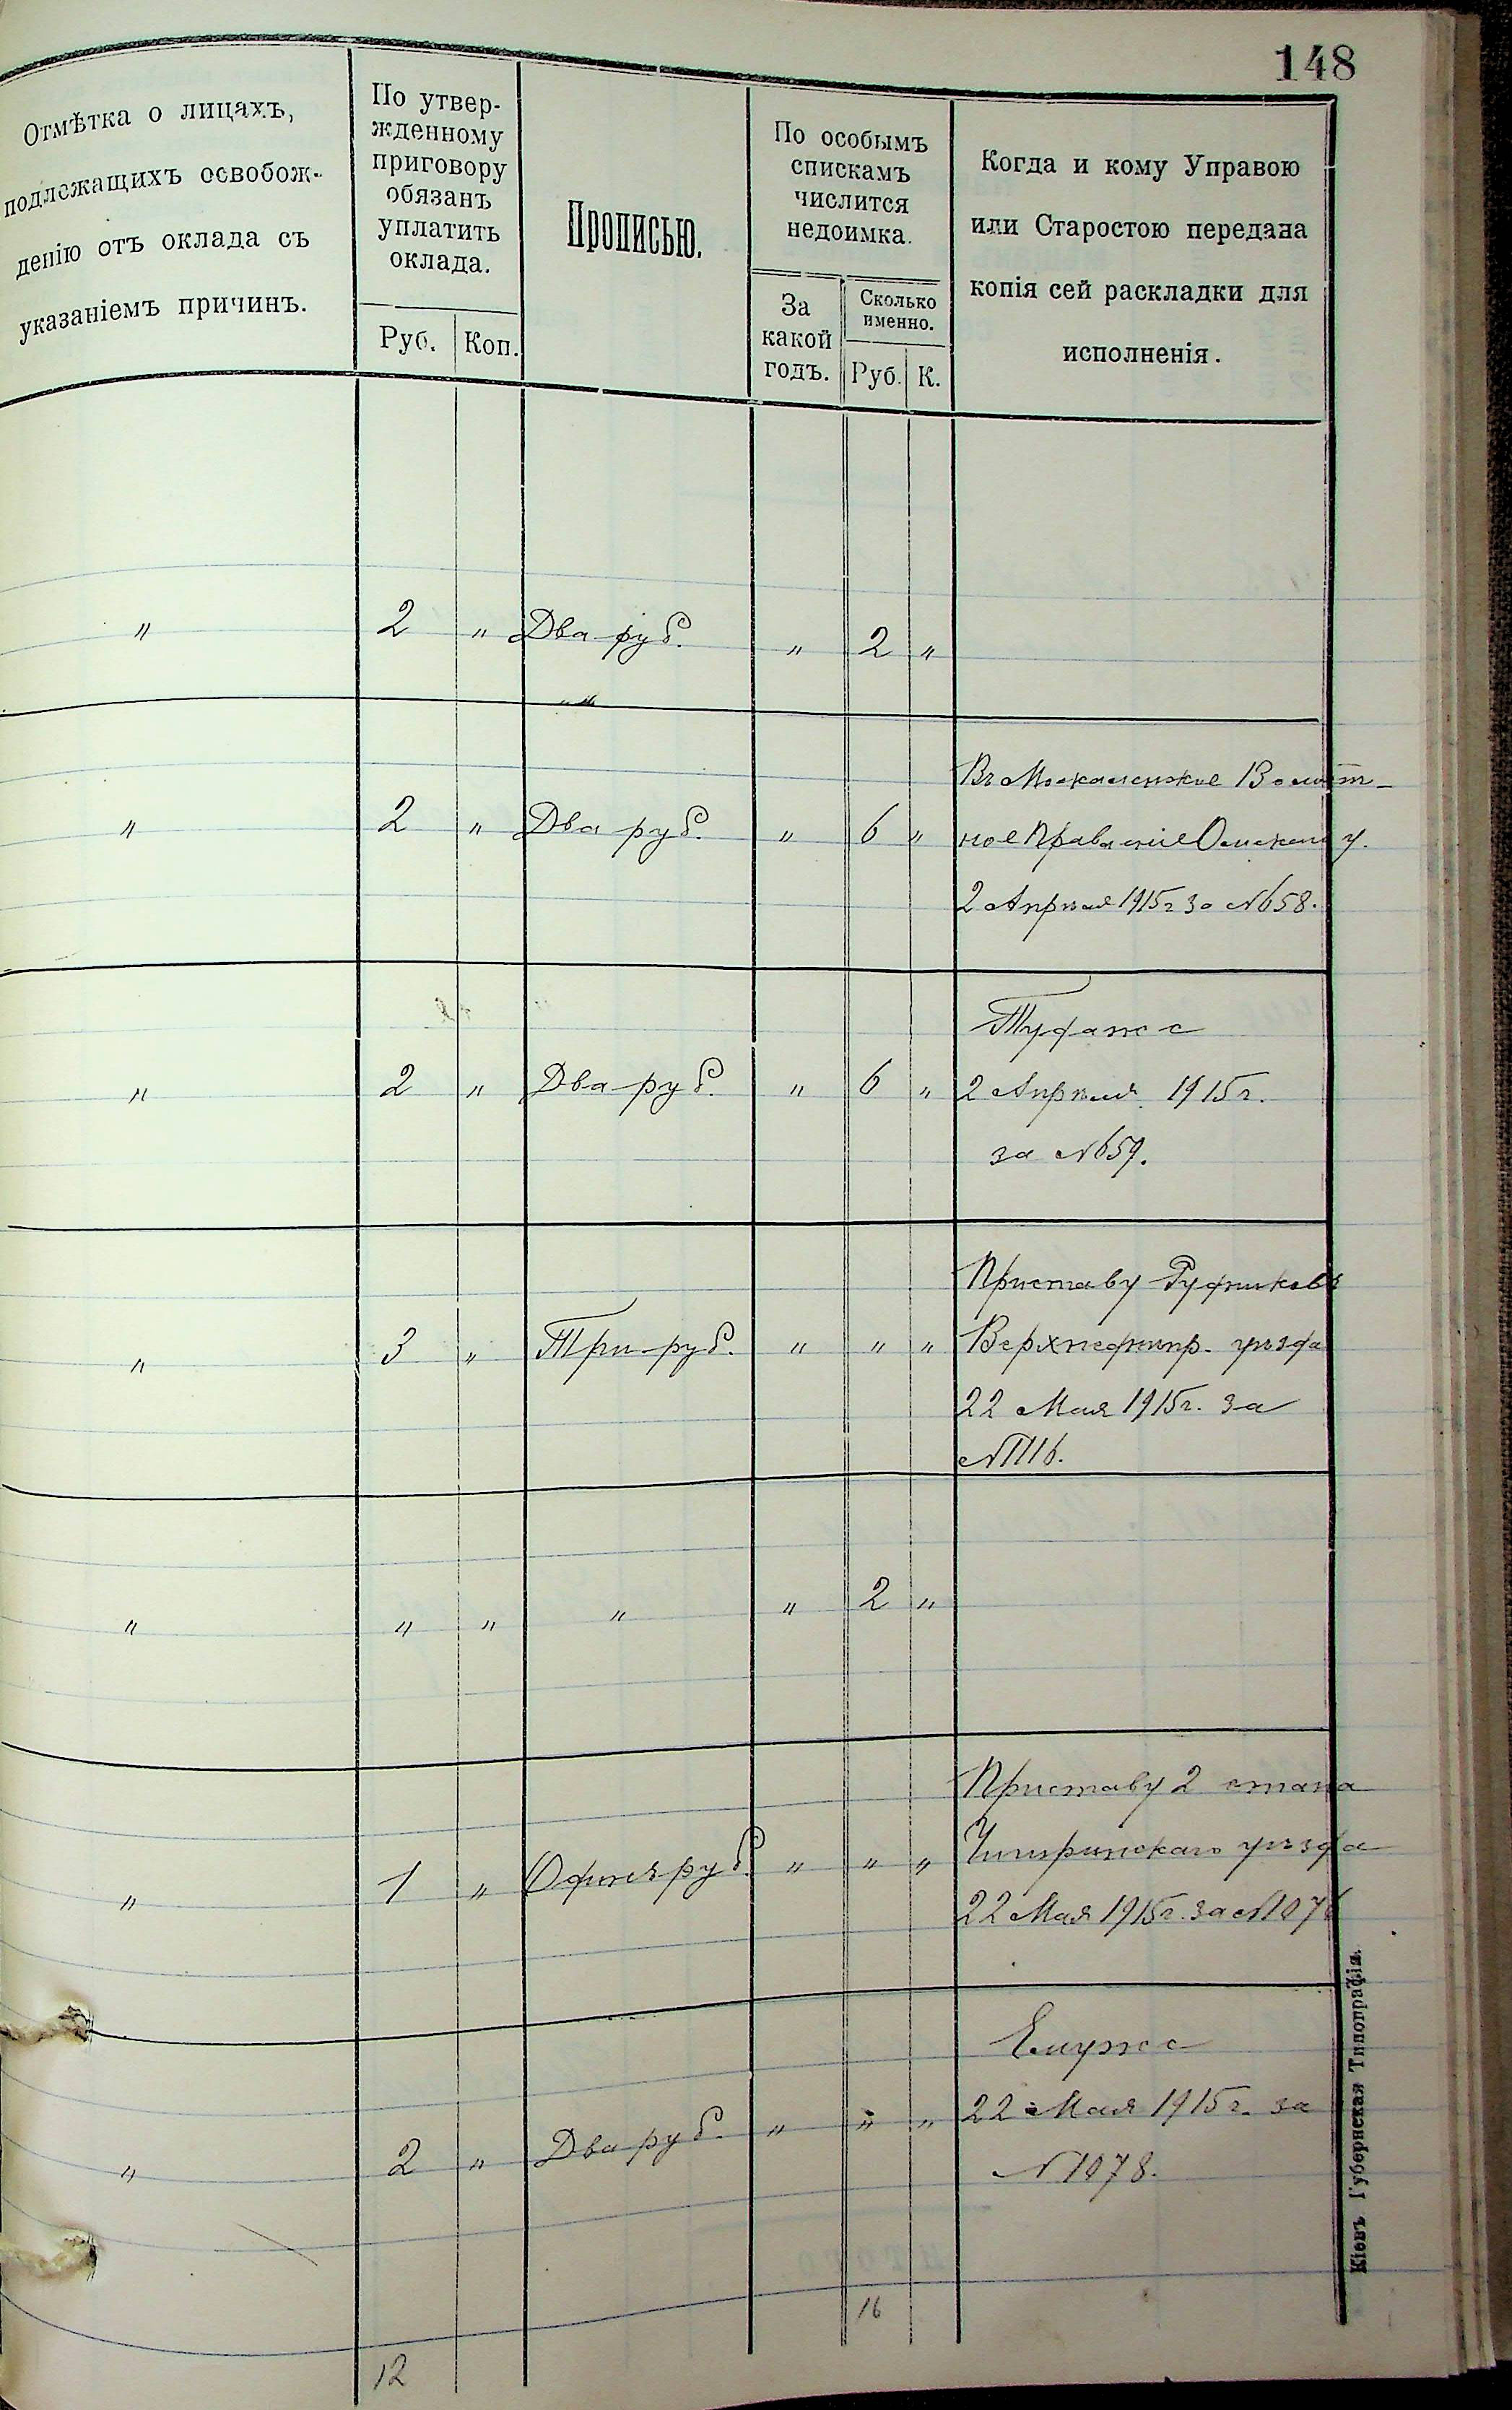 148
Отмѣтка о лицахъ,
подлежащихъ освобож-
денію отъ оклада съ
указаніемъ причинъ.
По утвер-
жденному
приговору
обязанъ
уплатить
оклада.
Руб. Коп.
Прописью.
По особымъ
спискамъ
числится
недоимка.
За
какой
годъ.
Сколько
именно.
Руб. К.
Когда и кому Управою
или Старостою передана
копія сей раскладки для
исполненія.
" 2 " Два руб. " 2 "
Въ Москаленское Волост-
" 2 " Два руб. " 6 " ное Правленіе Омскаго у.
2 Апрѣля 1915 г за №658.
Туда же
" 2 " Два руб. " 6 " 2 Апрѣля 1915 г.
за №659.
Приставу Рудниковъ
" 3 " Три руб. " " " Верхнеднипр. уѣзда
22 Мая 1915 г. за
№1116.
" " " " " 2 "
Приставу 2 стана
" 1 " Одинъ руб. " " " Чигиринскаго уѣзда
22 Мая 1915 г. за №1076
Ему же
" 2 " Два руб. " " " 22 Мая 1915 г. за
№1078.
16
12
Кіевъ Губернская Типографія.